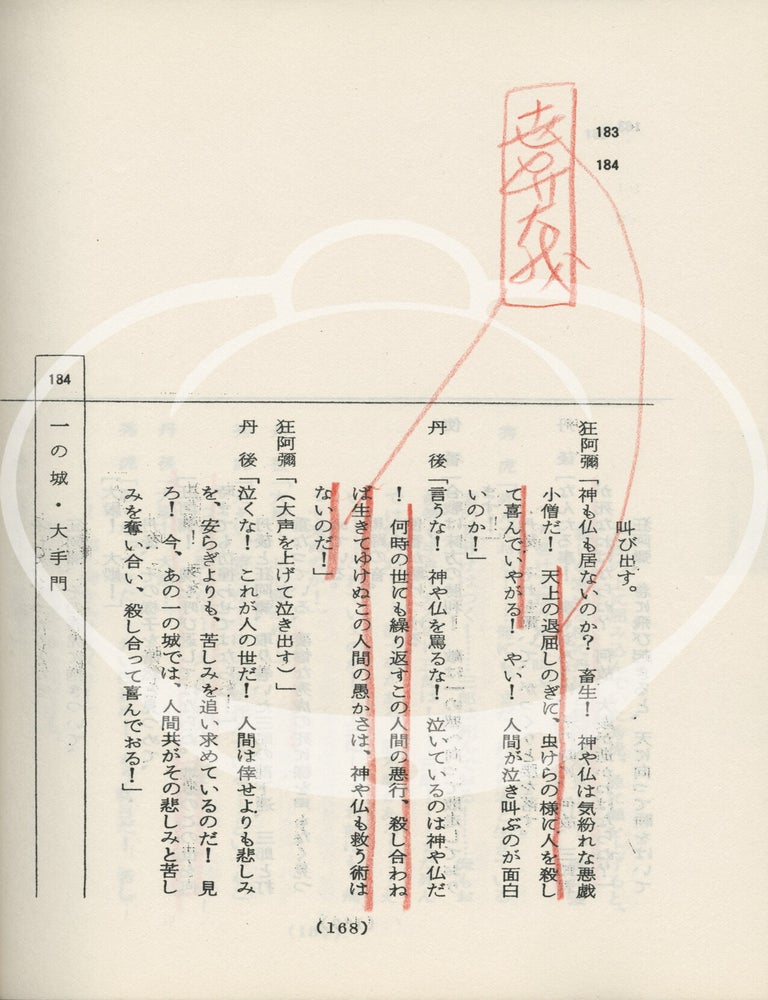 183
184
叫び出す。
狂阿彌「神も仏も居ないのか？　畜生！　神や仏は気紛れな悪戯
小僧だ！　天上の退屈しのぎに、虫けらの様に人を殺し
て喜んでいやがる！　やい！　人間が泣き叫ぶのが面白
いのか！」
丹　後「言うな！　神や仏を罵るな！　泣いているのは神や仏だ
！　何時の世にも繰り返すこの人間の悪行、殺し合わね
ば生きてゆけぬこの人間の愚かさは、神や仏も救う術は
ないのだ！」
狂阿彌「（大声を上げて泣き出す）」
丹　後「泣くな！　これが人の世だ！　人間は倖せよりも悲しみ
を、安らぎよりも、苦しみを追い求めているのだ！　見
ろ！　今、あの一の城では、人間共がその悲しみと苦し
みを奪い合い、殺し合って喜んでおる！」
184
一の城・大手門
(168)